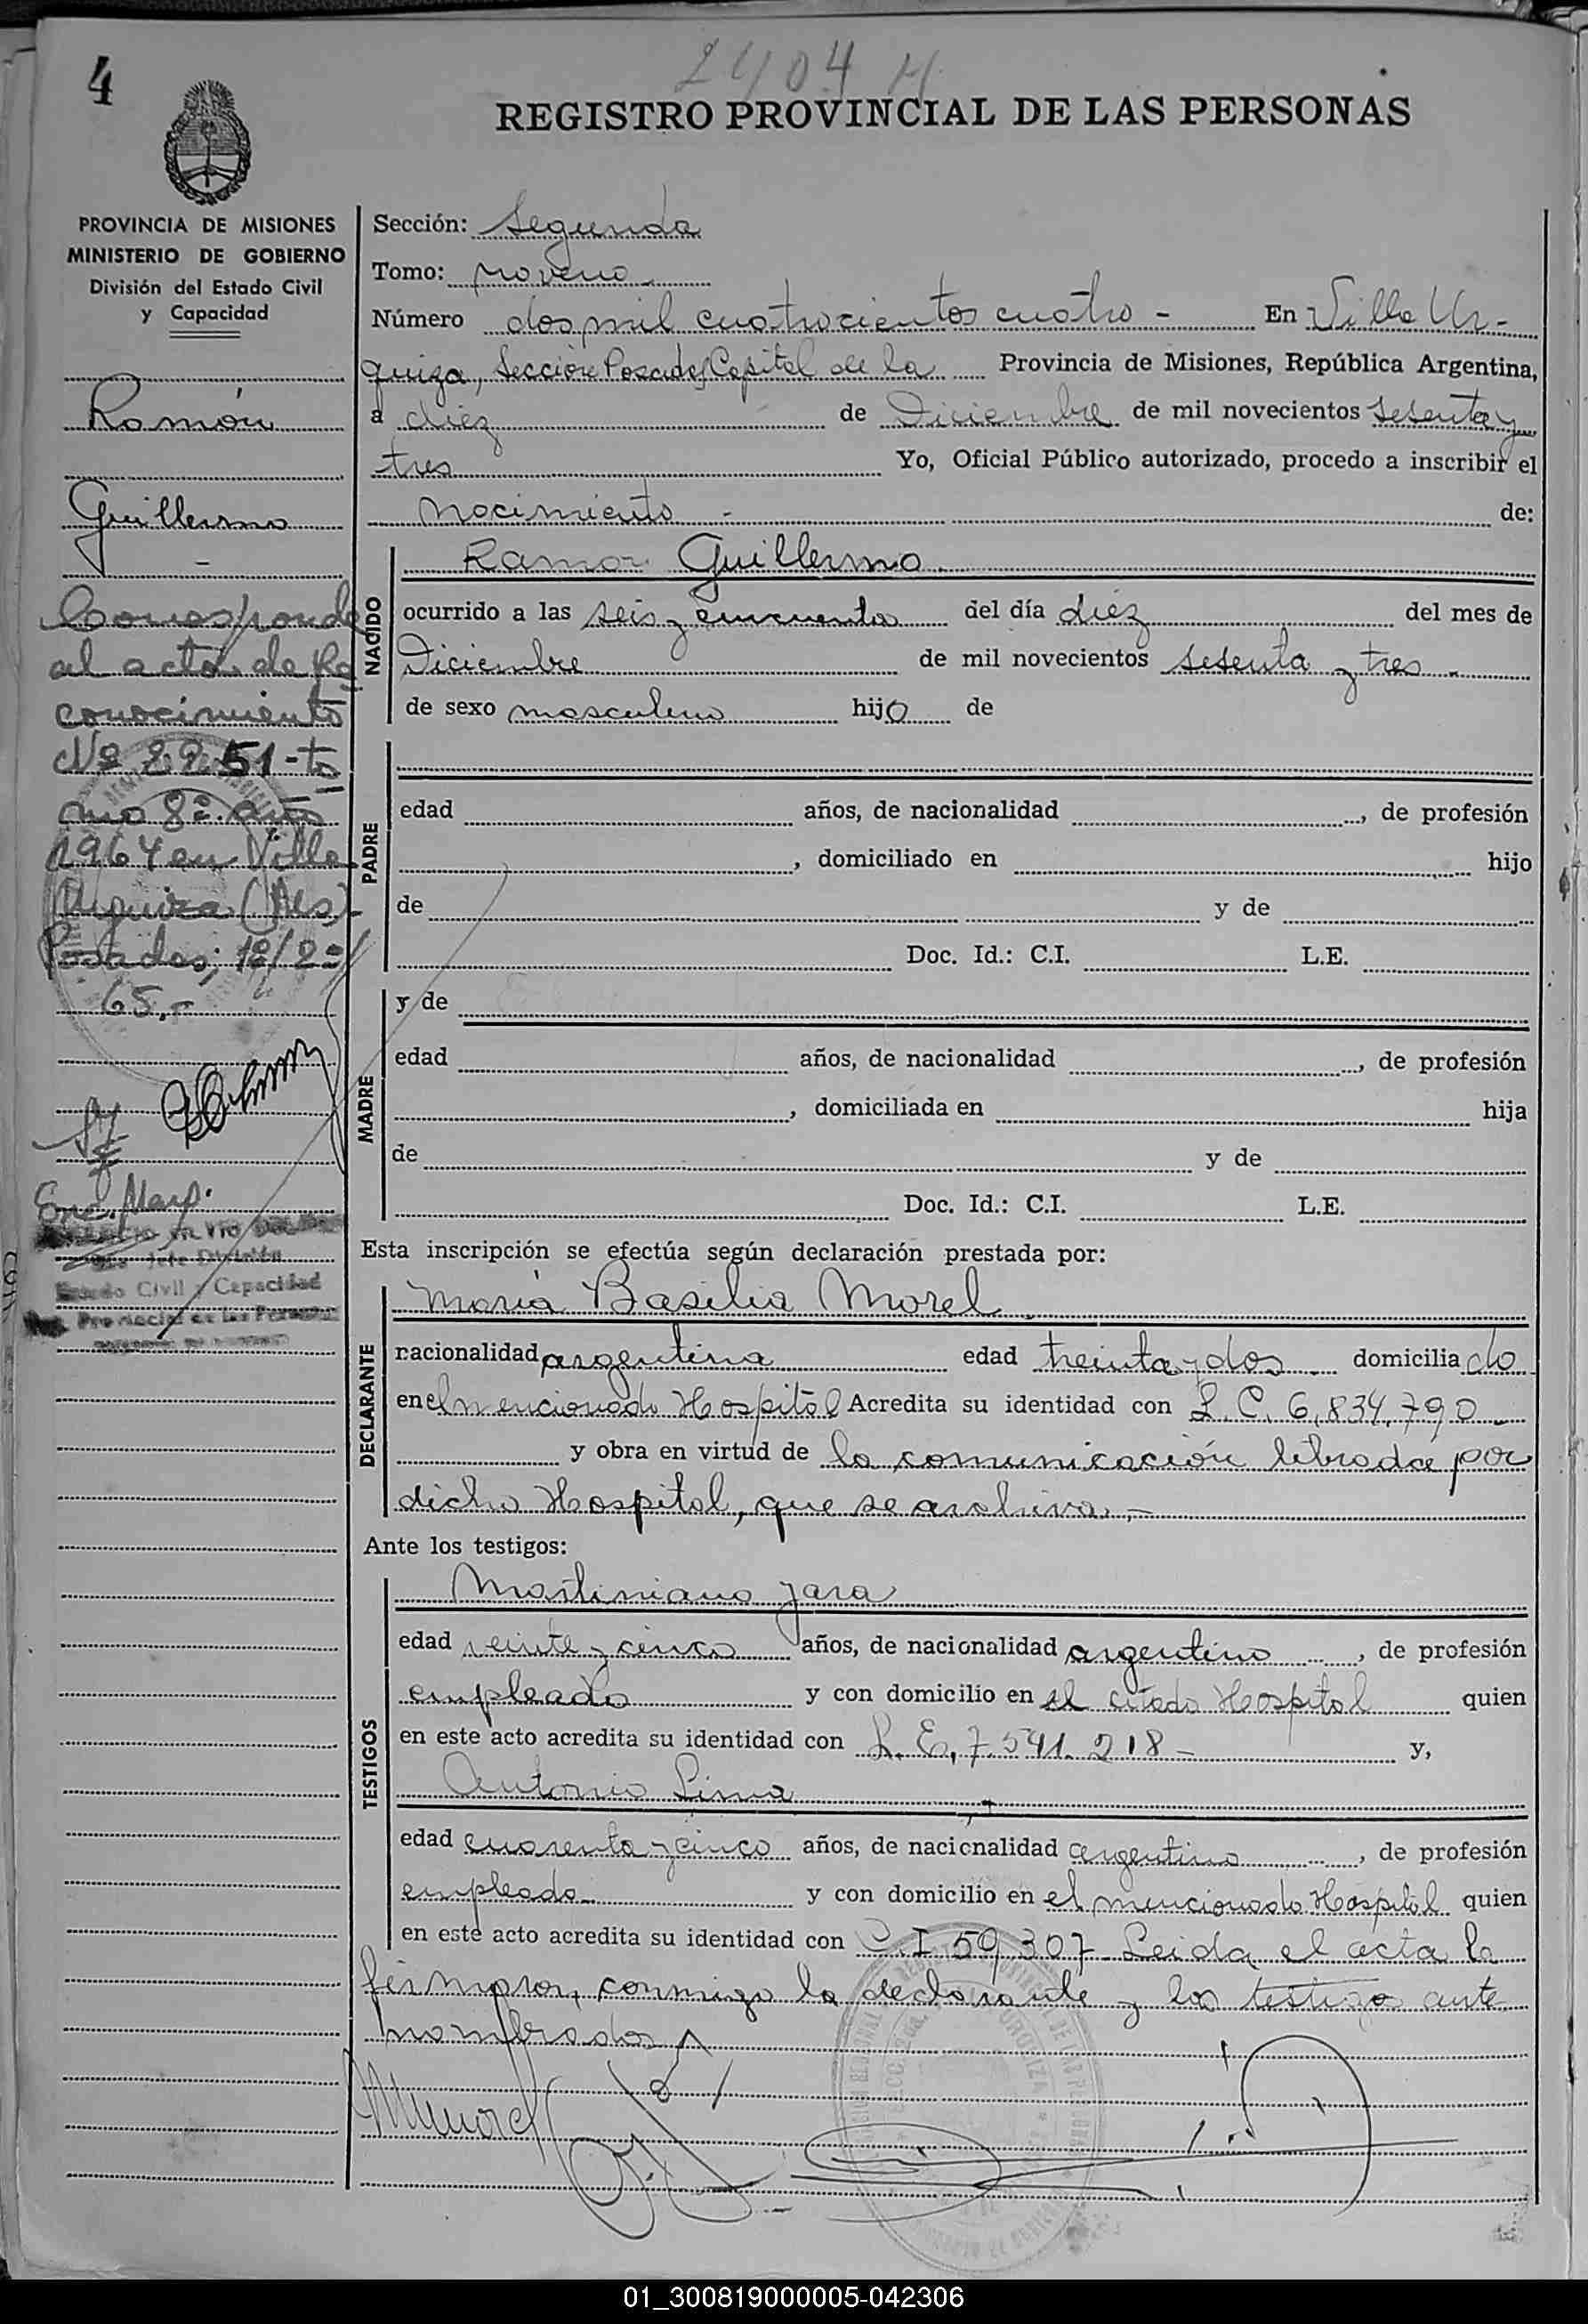 4
2404 H.
REGISTRO PROVINCIAL DE LAS PERSONAS
PROVINCIA DE MISIONES
MINISTERIO DE GOBIERNO
División del Estado Civil
y Capacidad
Ramón
Guillermo
Corresponde
al acta de Re
conocimiento
Nº 2251-to
mo 8º. año
1964 en Villa
Urquiza (Mes)
Posadas; 18/2
65.-
Enc. Marg.
Jefe División
Estado Civil y Capacidad
Reg. Provincial de las Personas
Sección: Segunda
Tomo: noveno
Número dos mil cuatrocientos cuatro - En Villa Ur-
quiza, Sección Posadas, Capital de la Provincia de Misiones, República Argentina,
a diez de Diciembre de mil novecientos sesenta y
tres Yo, Oficial Público autorizado, procedo a inscribir el
nacimiento - de:
NACIDO
Ramon Guillermo.
ocurrido a las seis y cincuenta del día diez del mes de
Diciembre de mil novecientos sesenta y tres -
de sexo masculino hijo de
PADRE
edad años, de nacionalidad , de profesión
, domiciliado en hijo
de y de
Doc. Id.: C.I. L.E.
MADRE
y de
edad años, de nacionalidad , de profesión
, domiciliada en hija
de y de
Doc. Id.: C.I. L.E.
Esta inscripción se efectúa según declaración prestada por:
DECLARANTE
María Basilia Morel
nacionalidad argentina edad treinta y dos domiciliado
en el mencionado Hospital Acredita su identidad con L.C. 6.834.790
y obra en virtud de la comunicación librada por
dicho Hospital, que se archiva.-
Ante los testigos:
TESTIGOS
Martiniano Jara
edad veinte y cinco años, de nacionalidad argentino , de profesión
empleado y con domicilio en el citado Hospital quien
en este acto acredita su identidad con L.E. 7.541.218- y,
Antonio Lima
edad cuarenta y cinco años, de nacionalidad argentino , de profesión
empleado y con domicilio en el mencionado Hospital quien
en este acto acredita su identidad con C.I 59307 Leida el acta la
firmaron, conmigo la declarante y los testigos ante
nombrados
01_300819000005-042306